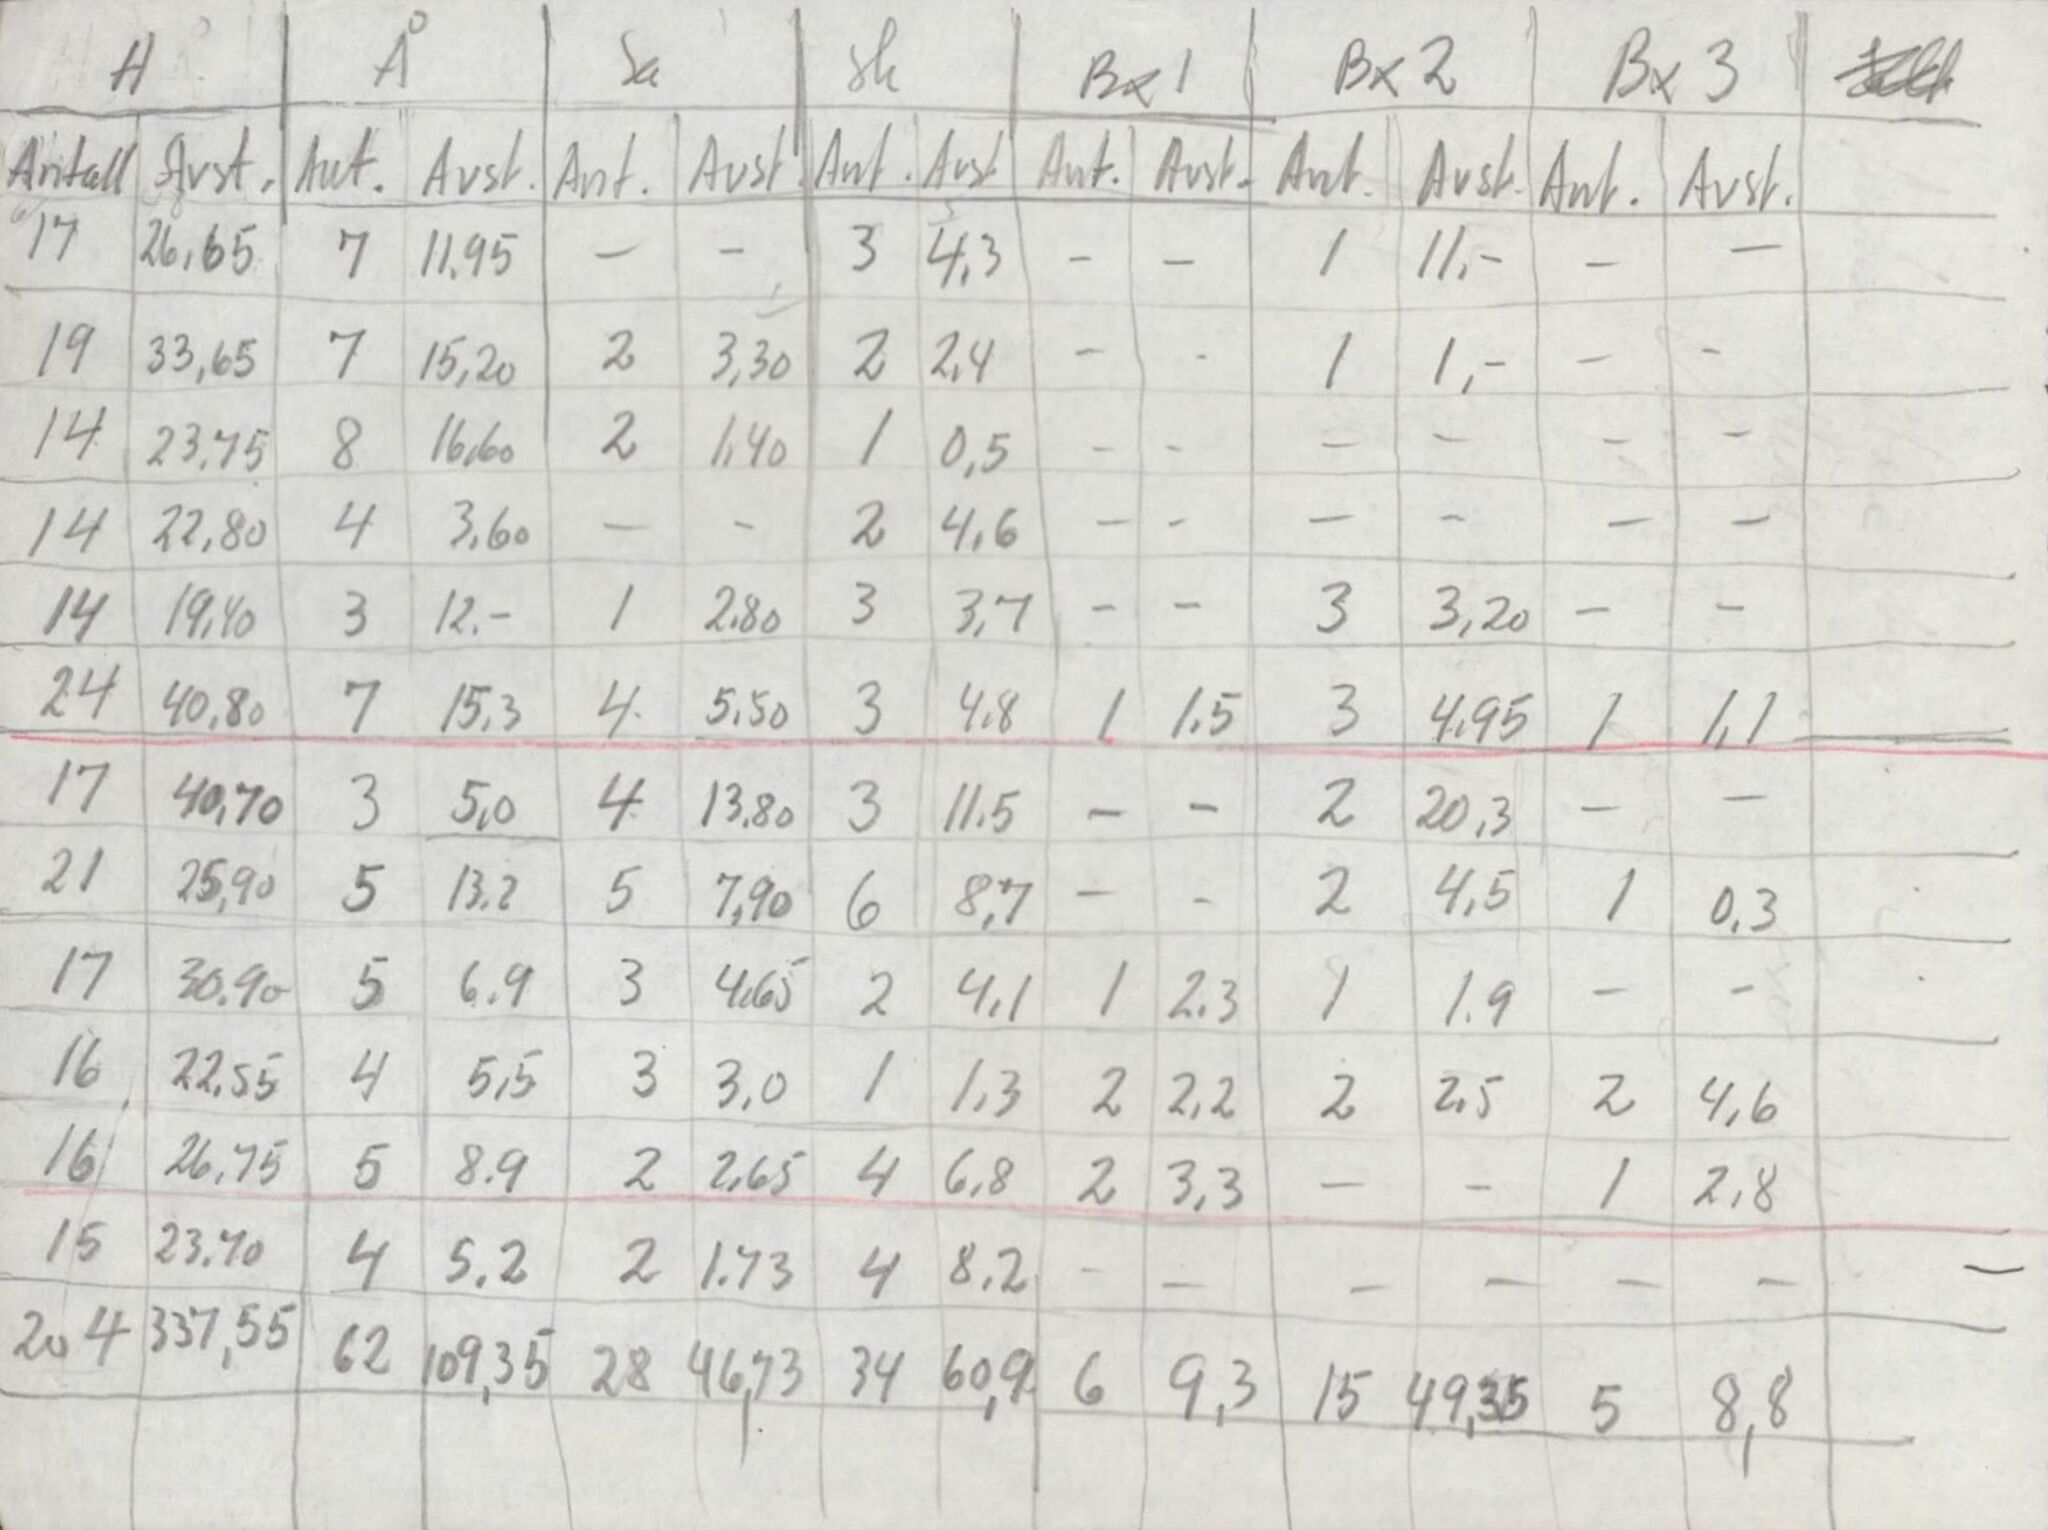 H Å Sa Sk Bx 1 Bx 2 Bx 3
Antall Avst. Ant. Avst. Ant. Avst. Ant. Avst Ant. Avst. Ant. Avst. Ant. Avst.
17 26,65 7 11.95 — - 3 4,3 - — 1 11,- - —
19 33,65 7 15,20 2 3,30 2 2,4 - - 1 1,- - -
14 23,75 8 16,60 2 1,40 1 0,5 - - - - - -
14 22,80 4 3,60 — - 2 4,6 — - — - — —
14 19,40 3 12.- 1 2.80 3 3,7 - - 3 3,20 - -
24 40,80 7 15.3 4 5.50 3 4.8 1 1.5 3 4.95 1 1,1
17 40,70 3 5,0 4 13.80 3 11.5 - - 2 20,3 - -
21 25,90 5 13.2 5 7,90 6 8,7 - - 2 4,5 1 0,3
17 30.90 5 6.9 3 4.65 2 4,1 1 2.3 1 1.9 - -
16 22,55 4 5,5 3 3,0 1 1,3 2 2,2 2 2,5 2 4,6
16 26,75 5 8.9 2 2,65 4 6,8 2 3,3 — - 1 2,8
15 23.70 4 5.2 2 1.73 4 8.2 - — — — — — —
204 337,55 62 109,35 28 46,73 34 60,9 6 9,3 15 49,35 5 8,8